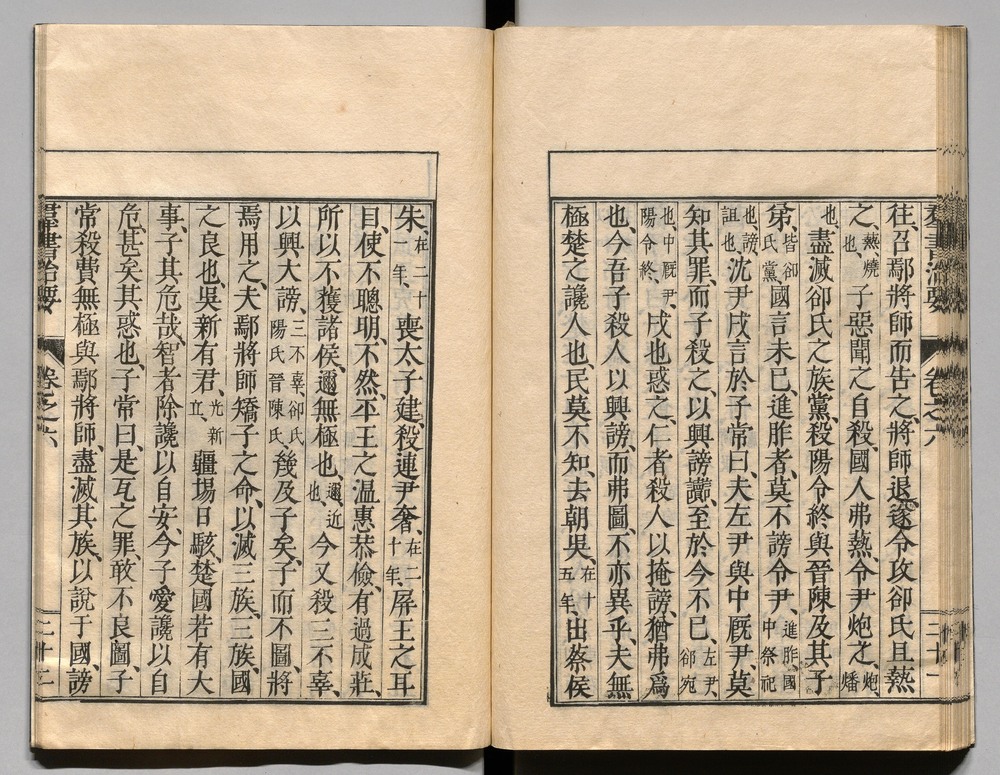 往、召鄢將師而告之、將師退、遂令攻卻氏且爇
之、爇燒也、子惡聞之自殺、國人弗爇、令尹炮之、炮、燔
也、盡滅卻氏之族黨、殺陽令終與晉陳及其子
弟、皆卻氏黨、國言未已、進胙者、莫不謗令尹、進胙、國中祭祀
也、謗、詛也、沈尹戌言於子常曰、夫左尹與中厩尹、莫
知其罪、而子殺之、以興謗讟、至於今不已、左尹、郤宛
也、中厩尹、陽令終、戌也惑之、仁者殺人以掩謗、猶弗爲
也、今吾子殺人以興謗、而弗圖、不亦異乎、夫無
極楚之讒人也、民莫不知、去朝吳、在十五年、出蔡侯
朱、在二十一年、喪太子建、殺連尹奢、在二十年、屏王之耳
目、使不聰明、不然、平王之溫惠恭儉、有過成莊、
所以不獲諸侯、邇無極也、邇、近也、今又殺三不辜、
以興大謗、三不辜、卻氏陽氏晉陳氏、幾及子矣、子而不圖、將
焉用之、夫鄢將師矯子之命、以滅三族、三族、國
之良也、吳新有君、光新立、疆場日駭、楚國若有大
事、子其危哉、智者除讒以自安、今子愛讒以自
危、甚矣其惑也、子常曰、是瓦之罪、敢不良圖、子
常殺費無極與鄢將師、盡滅其族、以說于國、謗
羣書治要
卷之六
二十一
羣書治要
卷之六
二十二